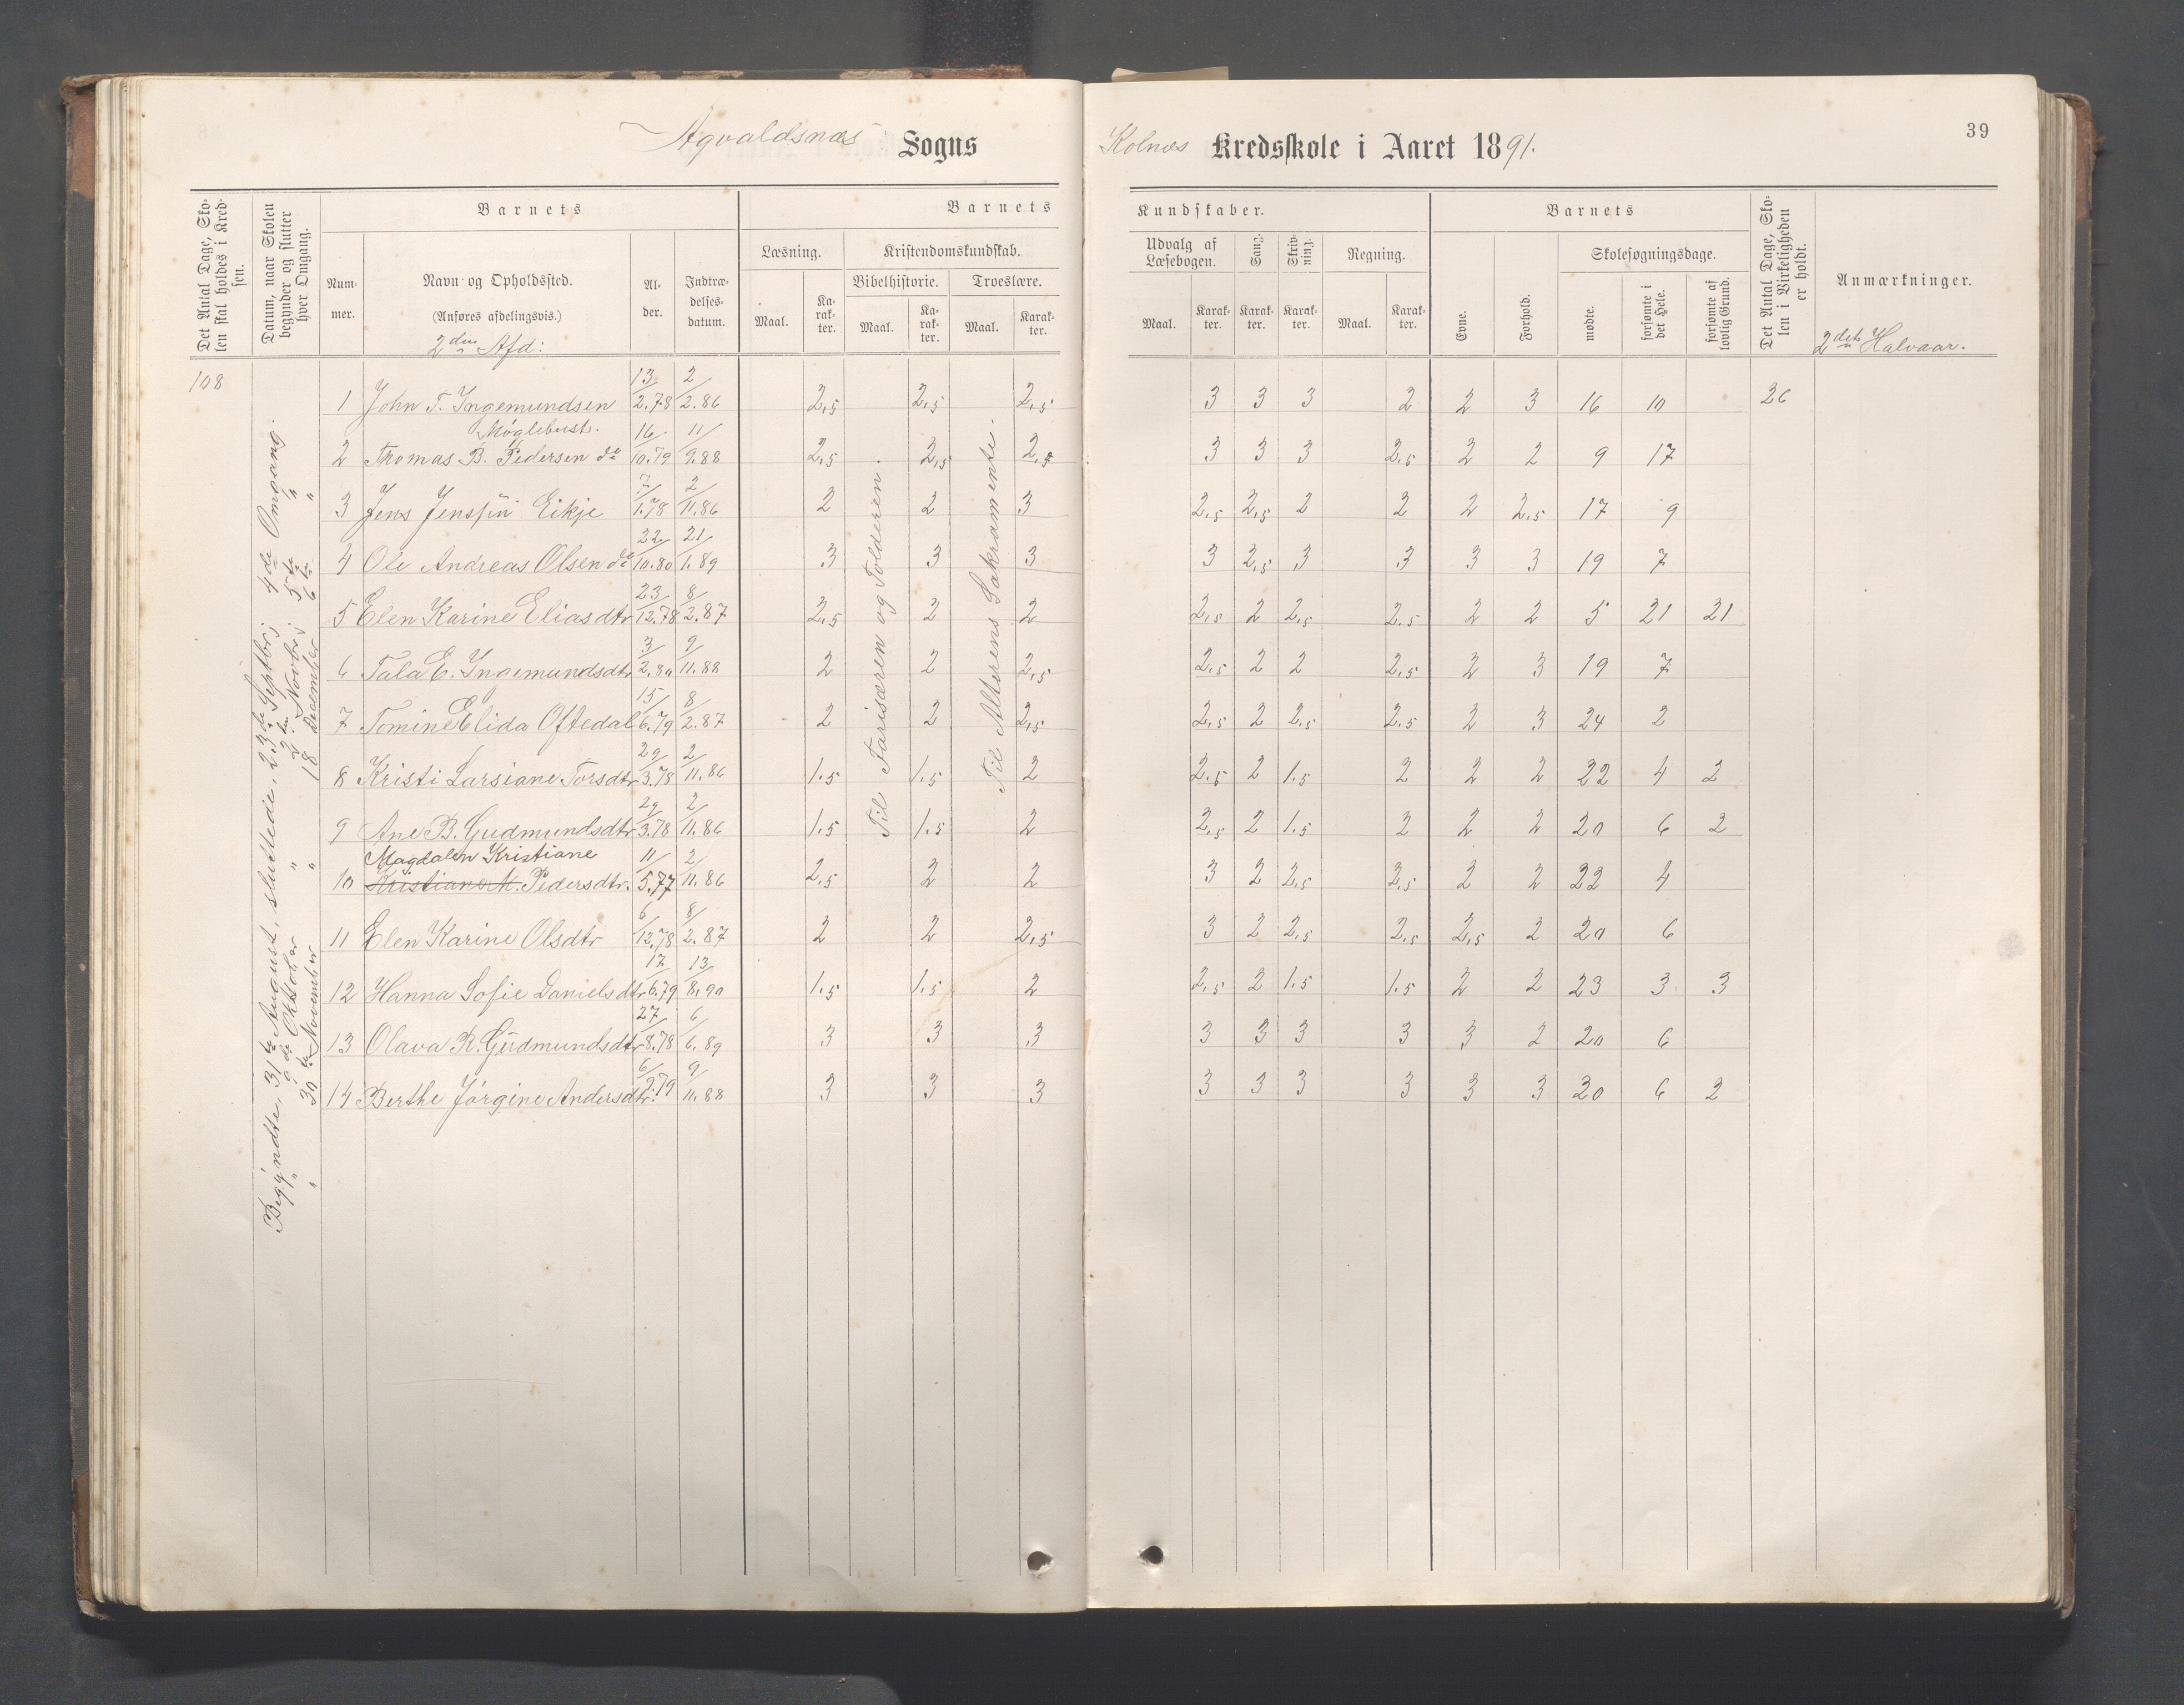 Agvaldsnæs Sogns
Kolnæs Kredsskole i Aaret 1891.
39
Det Antal Dage, Skolen skal holdes i Kredsen.
Datum, naar Skolen begynder og slutter hver Omgang.
Barnets
Nummer.
Navn og Opholdssted.
(Anføres afdelingsvis.)
2den Afd:
Alder.
Indtrædelsesdatum.
Barnets
Læsning.
Maal.
Karakter.
Kristendomskundskab.
Bibelhistorie.
Maal.
Karakter.
Troeslære.
Maal.
Karakter.
Kundskaber.
Udvalg af Læsebogen.
Maal.
Karakter.
Sang.
Karakter.
Skrivning.
Karakter.
Regning.
Maal.
Karakter.
Barnets
Evne.
Forhold.
Skolesøgningsdage.
mødte.
forsømte i det Hele.
forsømte af lovlig Grund.
Det Antal Dage, Skolen i Virkeligheden er holdt.
Anmærkninger.
2det Halvaar.
108
Begyndte, 31te August, sluttede, 23de Septbr; 4de Omgang.
" 9de Oktober " 3die Novbr; 5te "
" 30te November " 18 December 6te "
Til Farisæren og Tolderen.
Til Alterens Sakramente.
1 John T. Ingemundsen 13/2.78 2/2.86 2,5 2,5 2,5 3 3 3 2 2 3 16 10 26
Møglebust.
2 Thomas B. Pedersen do 16/10.79 11/9.88 2,5 2,5 2,5 3 3 3 2,5 2 2 9 17
3 Jens Jensen Eikje 7/1.78 2/11.86 2 2 3 2,5 2,5 2 2 2 2,5 17 9
4 Ole Andreas Olsen do 22/10.80 21/1.89 3 3 3 3 2,5 3 3 3 3 19 7
5 Elen Karine Eliasdtr 23/12.78 8/2.87 2,5 2 2 2,5 2 2,5 2,5 2 2 5 21 21
6 Tala E. Ingemundsdtr 3/2.80 9/11.88 2 2 2,5 2,5 2 2 2,5 2 3 19 7
7 Tomine Elida Oftedal 15/6.79 8/2.87 2 2 2,5 2,5 2 2,5 2,5 2 3 24 2
8 Kristi Larsiane Torsdtr 29/3.78 2/11.86 1,5 1,5 2 2,5 2 1,5 2 2 2 22 4 2
9 Ane B. Gudmundsdtr 29/3.78 2/11.86 1,5 1,5 2 2,5 2 1,5 2 2 2 20 6 2
Magdalen Kristiane
10 Kristiane M. Pedersdtr. 11/5.77 2/11.86 2,5 2 2 3 2 2,5 2,5 2 2 22 4
11 Elen Karine Olsdtr 6/12.78 8/2.87 2 2 2,5 3 2 2,5 2,5 2,5 2 20 6
12 Hanna Sofie Danielsdtr 17/6.79 13/8.90 1,5 1,5 2 2,5 2 1,5 1,5 2 2 23 3 3
13 Olava R. Gudmundsdtr 27/8.78 6/6.89 3 3 3 3 3 3 3 3 2 20 6
14 Berthe Jørgine Andersdtr. 6/2.79 9/11.88 3 3 3 3 3 3 3 3 3 20 6 2